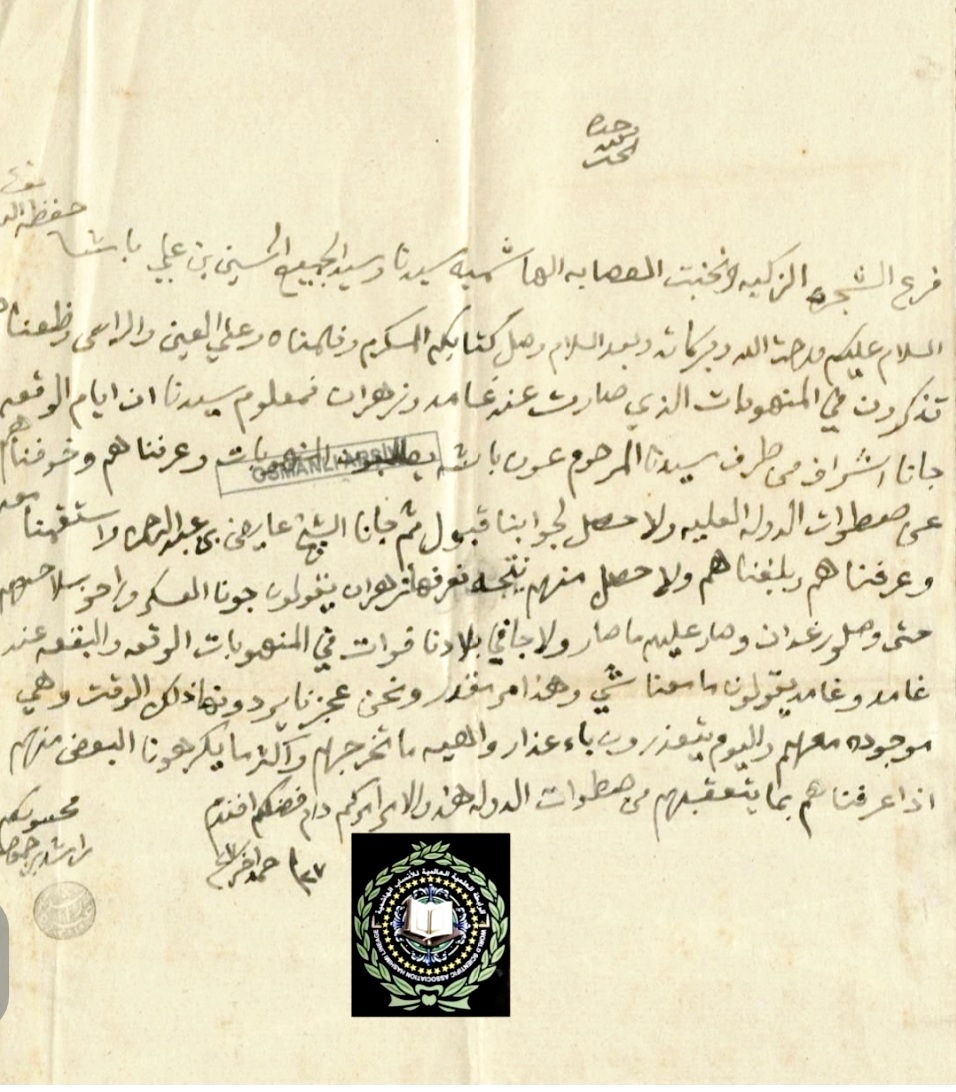 الحمد لله وحده
فرع الشجره الزكيه ونخبت العصابه الهاشميه سيدنا وسيد الجميع الحسين بن علي باشا
حفظه الله
السلام عليكم ورحمت الله وبركاته وبعد السلام وصل كتابكم المكرم وفهمناه وعلي العين والراس
تذكرون في المنهوبات الذي صارت عند غامد وزهران فمعلوم سيدنا ان ايام الوقعه
جانا اشراف من طرف سيدنا المرحوم عون باشه يطلبون المنهوبات وعرفناهم وخوفناهم
عن صطوات الدوله العليه ولا حصل لجوابنا قبول ثم جانا الشيخ عايض بن عبدالله
وعرفناهم وبلغناهم ولا حصل منهم نتيجه زهران يقولون جونا العسكر
حتى وصلو رغدان وصار عليهم ما صار ولا جا في بلادنا فوات في المنهوبات الوقعه والبقعه عند
غامد وغامد يقولون ما معنا شي وهذا امر مقدر ونحن عجزنا يردونها ذلك الوقت وهي
موجوده معهم واليوم يتعذرون باعذار واهيه ما تخرجهم واكثر ما يكرهونا البعض منهم
اذا عرفناهم بما يتعقبهم من صطوات الدوله هذا والامر امركم دام فضلكم افندم
محسوبكم
راشد بن
OSMANLI ARŞİVİ
WORLD SCIENTIFIC ASSOCIATION HASHIMI LINEAGE